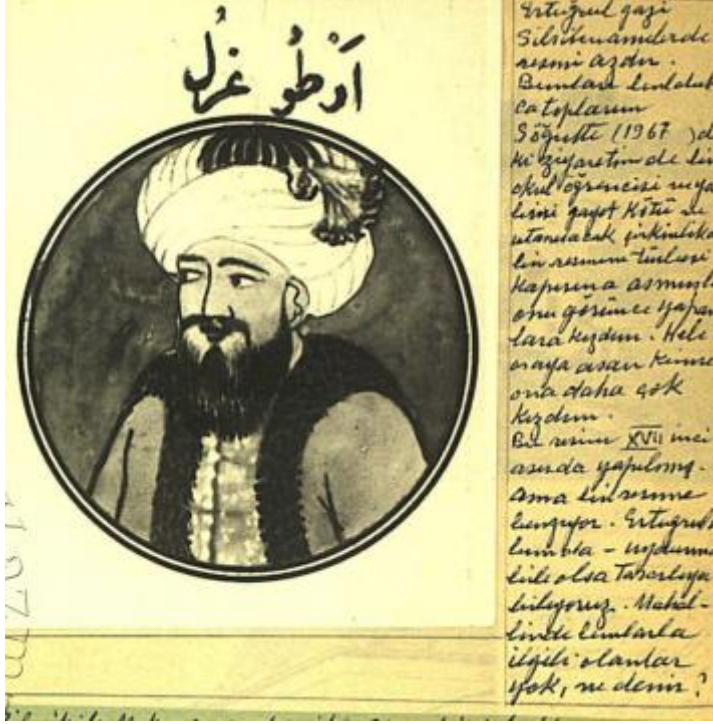 اَرْطُو غْرُل
Ertuğrul gazi
Silsilenamelerde
resmi azdır.
Bunları buldukça
toplarım
Söğütte (1967 )de
ki ziyaretimde bir
okul öğrencisi
gayet kötü ve
utanılacak çirkinlikte
bir resmini türbesi
kapısına asmışlar
onu görünce yapan
lara kızdım. Hele
oraya asan
ona daha çok
kızdım.
Bu resim XVII inci
asırda yapılmış.
Ama bir resme
benziyor. Ertuğrul
bununla - uydurma
bile olsa
biliyoruz. Mahal-
linde bunlarla
ilgili olanlar
yok, ne denir?